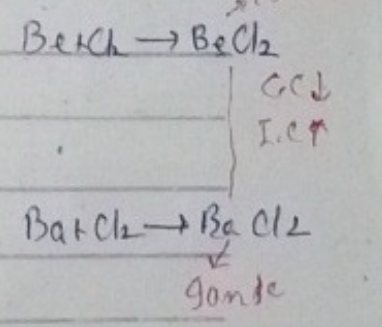 Be+Cl2 → BeCl2
C.C↓
I.C↑
Ba+Cl2 → BaCl2